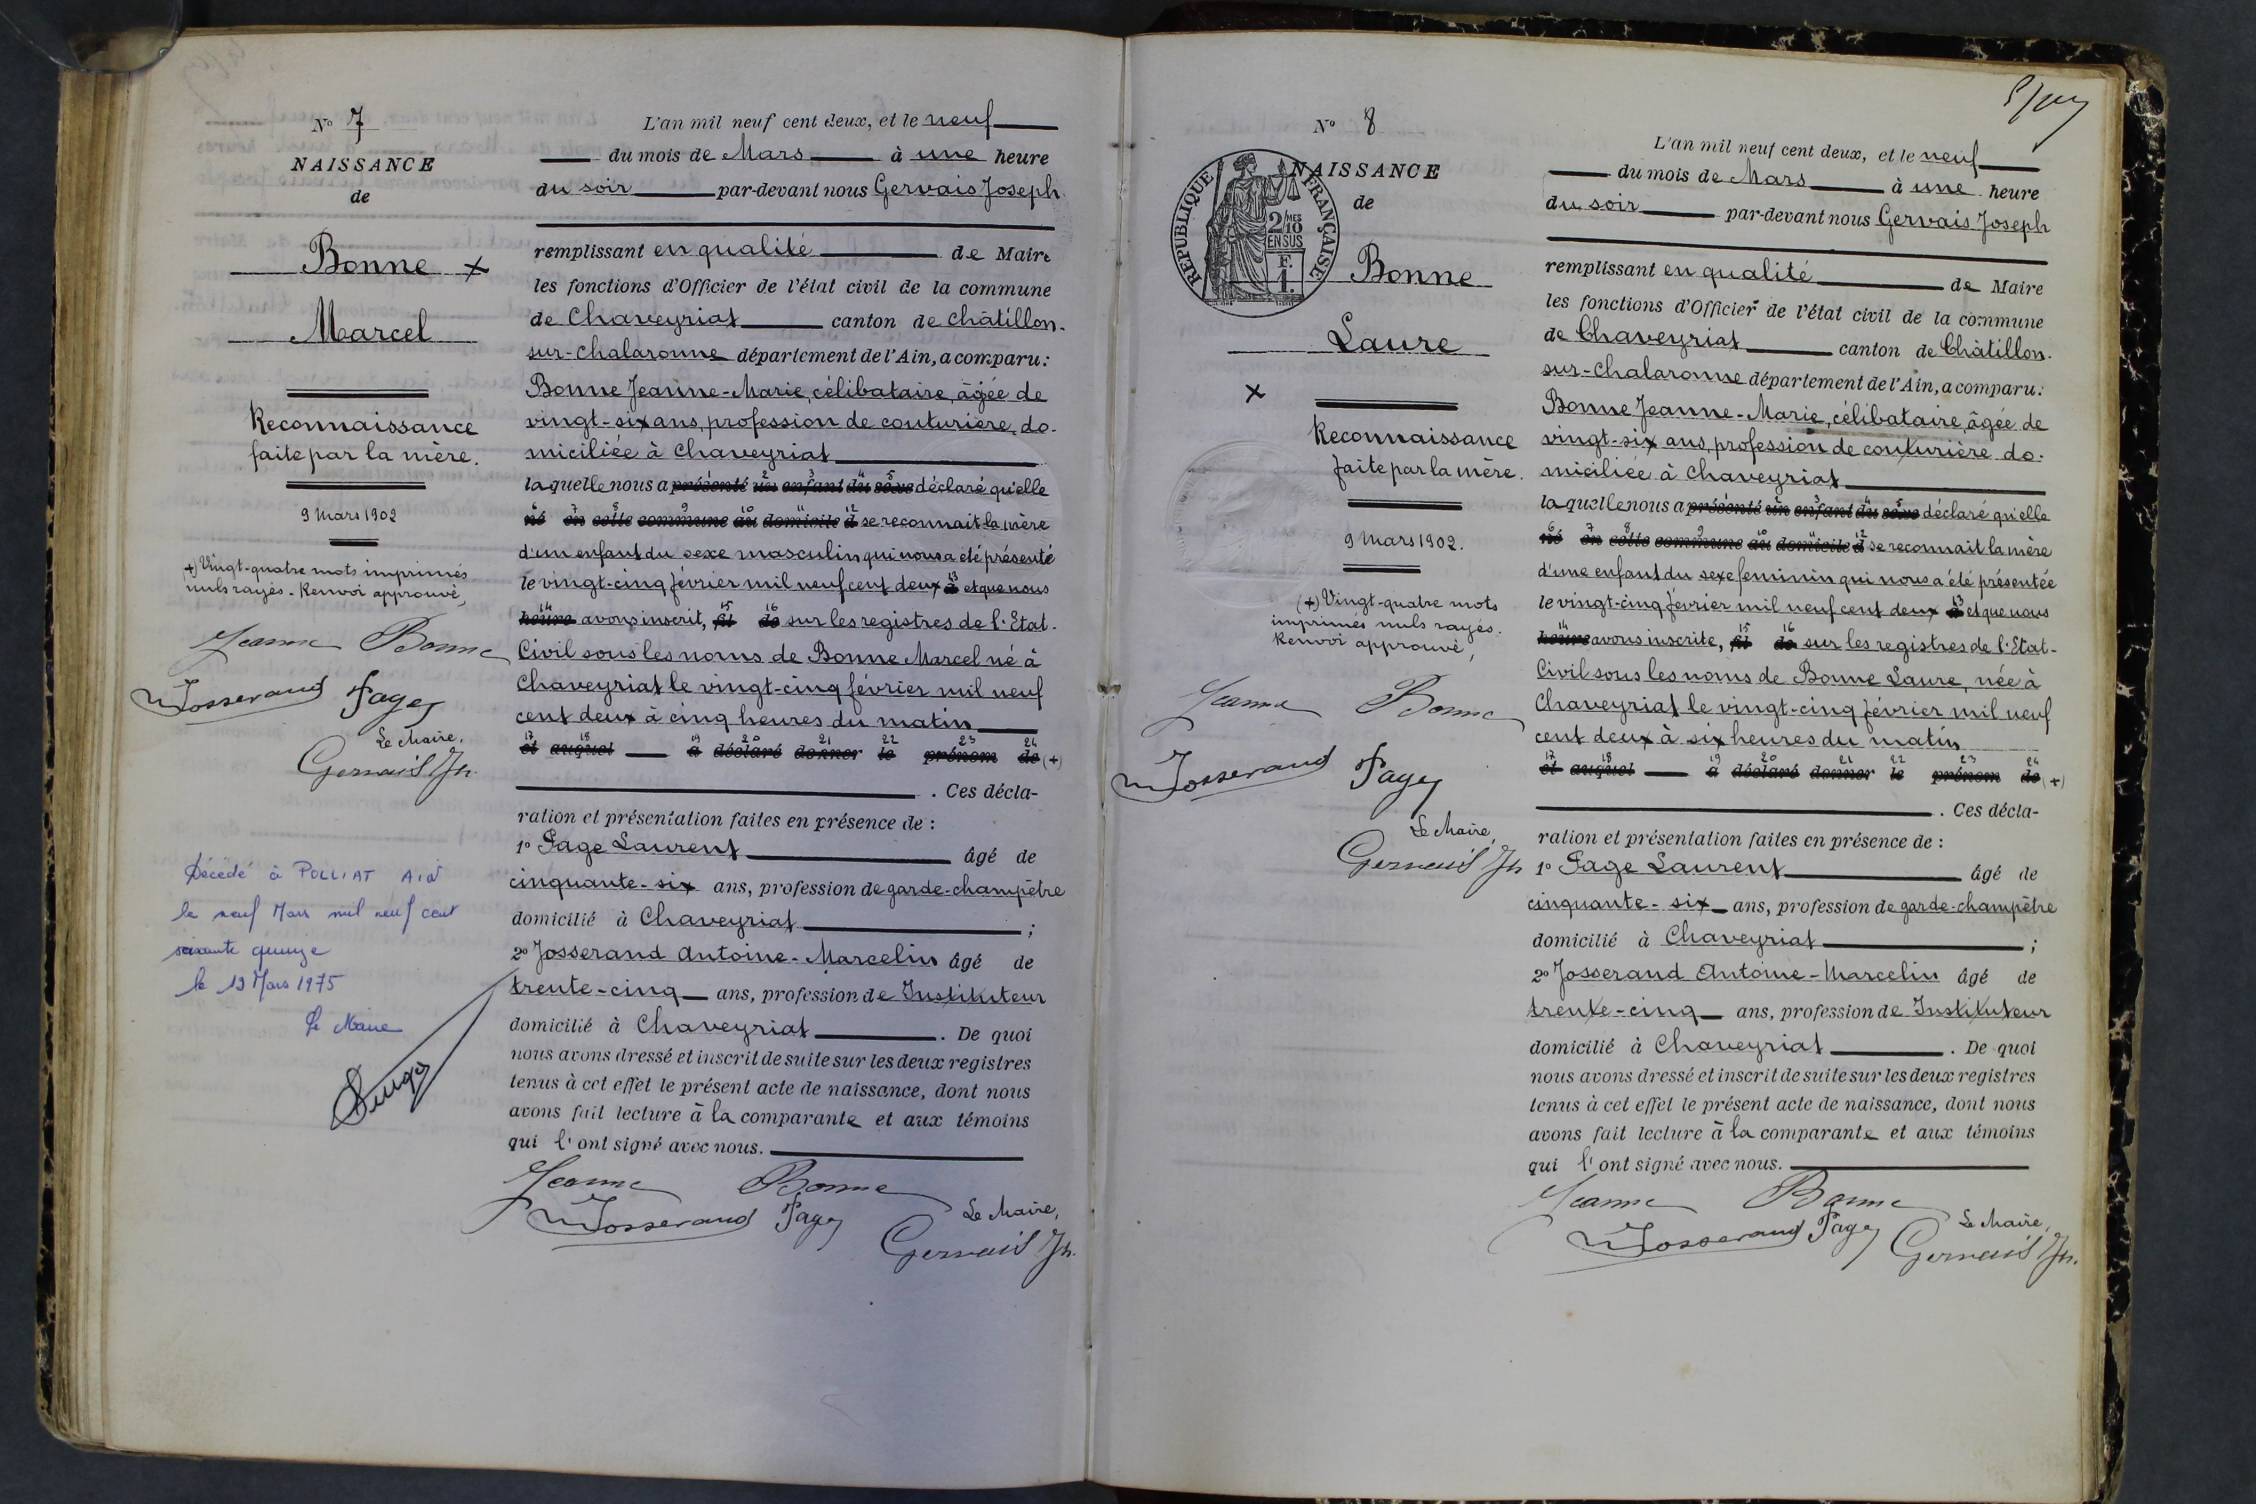 No 7
NAISSANCE
de
Bonne
Marcel
Reconnaissance
faite par la mère.
9 Mars 1902
(+) Vingt-quatre mots imprimés
nuls rayés. Renvoi approuvé,
Jeanne Bonne
Josserand Page
Le Maire,
Gervais Jh.
Décédé à POLLIAT Ain
le neuf Mars mil neuf cent
soixante quinze
le 19 Mars 1975
Le Maire
L'an mil neuf cent deux, et le neuf
du mois de Mars à une heure
du soir par-devant nous Gervais Joseph
remplissant en qualité de Maire
les fonctions d'Officier de l'état civil de la commune
de Chaveyriat canton de Châtillon-
sur-Chalaronne département de l'Ain, a comparu:
Bonne Jeanne-Marie, célibataire, âgée de
vingt-six ans, profession de couturière, do-
miciliée à Chaveyriat
laquelle nous a présenté 2 un 3 enfant 4 du 5 sexe déclaré qu'elle
6 né 7 en 8 cette 9 commune 10 au 11 domicile 12 d se reconnait la mère
d'un enfant du sexe masculin qui nous a été présenté
le vingt-cinq février mil neuf cent deux 13 à et que nous
14 heure avons inscrit, 15 fil 16 de sur les registres de l'Etat-
Civil sous les noms de Bonne Marcel né à
Chaveyriat le vingt-cinq février mil neuf
cent deux à cinq heures du matin
17 et 18 auquel 19 a 20 déclaré 21 donner 22 le 23 prénom 24 de (+)
. Ces décla-
ration et présentation faites en présence de :
1o Page Laurent âgé de
cinquante-six ans, profession de garde-champêtre
domicilié à Chaveyriat ;
2o Josserand Antoine-Marcelin âgé de
trente-cinq ans, profession de Instituteur
domicilié à Chaveyriat . De quoi
nous avons dressé et inscrit de suite sur les deux registres
tenus à cet effet le présent acte de naissance, dont nous
avons fait lecture à la comparante et aux témoins
qui l'ont signé avec nous.
Jeanne Bonne
Josserand Page Le Maire,
Gervais Jh.
No 8
NAISSANCE
de
REPUBLIQUE FRANÇAISE
2/10 MES
EN SUS
F.
1.
Bonne
Laure
Reconnaissance
faite par la mère.
9 Mars 1902.
(+) Vingt-quatre mots
imprimés nuls rayés.
Renvoi approuvé,
Jeanne Bonne
Josserand Page
Le Maire,
Gervais Jh
L'an mil neuf cent deux, et le neuf
du mois de Mars à une heure
du soir par-devant nous Gervais Joseph
remplissant en qualité de Maire
les fonctions d'Officier de l'état civil de la commune
de Chaveyriat canton de Châtillon-
sur-Chalaronne département de l'Ain, a comparu:
Bonne Jeanne-Marie, célibataire, âgée de
vingt-six ans, profession de couturière do-
miciliée à Chaveyriat
laquelle nous a présenté 2 un 3 enfant 4 du 5 sexe déclaré qu'elle
6 né 7 en 8 cette 9 commune 10 au 11 domicile 12 d se reconnait la mère
d'une enfant du sexe feminin qui nous a été présentée
le vingt-cinq février mil neuf cent deux 13 à et que nous
14 heure avons inscrite, 15 fil 16 de sur les registres de l'Etat-
Civil sous les noms de Bonne Laure, née à
Chaveyriat le vingt-cinq février mil neuf
cent deux à six heures du matin
17 et 18 auquel 19 a 20 déclaré 21 donner 22 le 23 prénom 24 de (+)
. Ces décla-
ration et présentation faites en présence de :
1o Page Laurent âgé de
cinquante-six ans, profession de garde-champêtre
domicilié à Chaveyriat ;
2o Josserand Antoine-Marcelin âgé de
trente-cinq ans, profession de Instituteur
domicilié à Chaveyriat . De quoi
nous avons dressé et inscrit de suite sur les deux registres
tenus à cet effet le présent acte de naissance, dont nous
avons fait lecture à la comparante et aux témoins
qui l'ont signé avec nous.
Jeanne Bonne
Josserand Page Le Maire,
Gervais Jh.